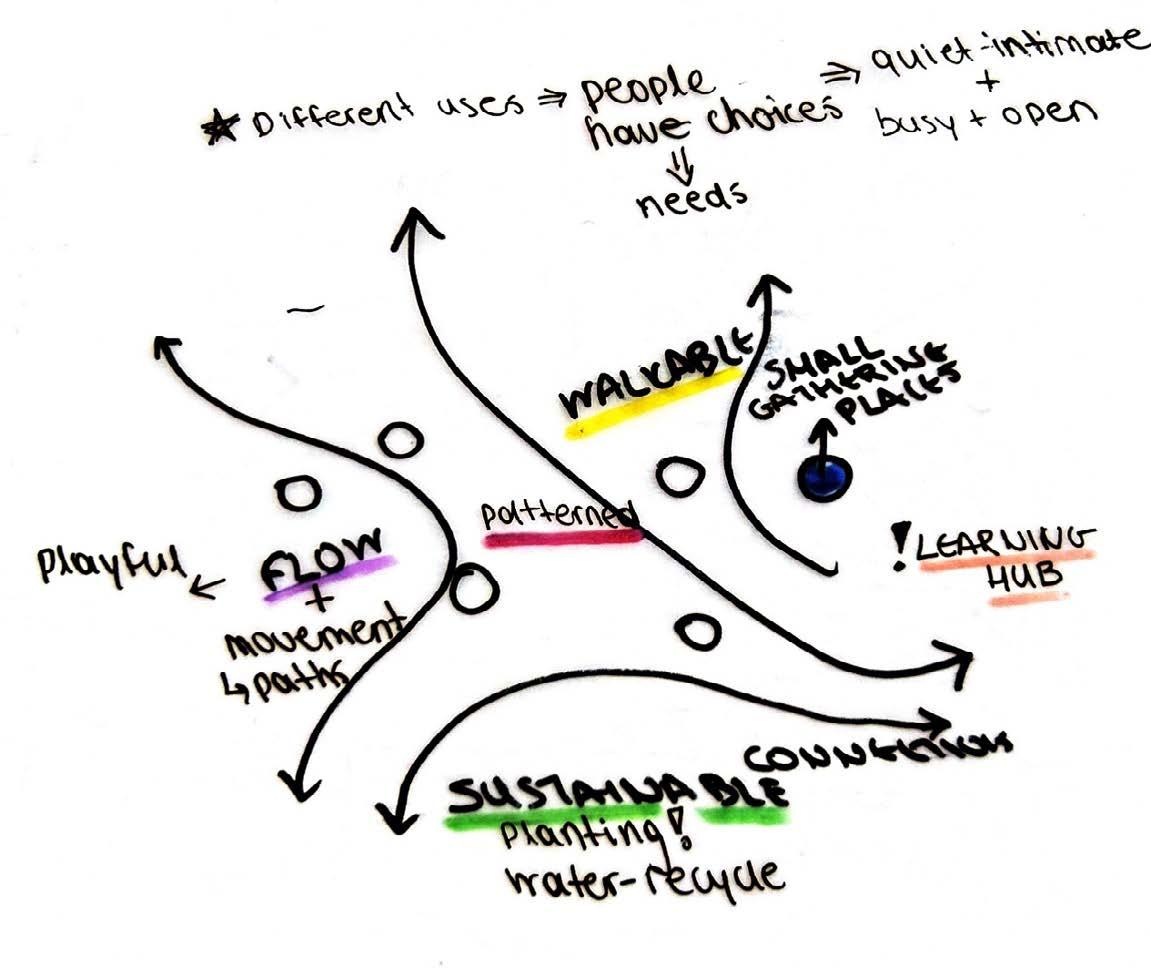 ★ Different uses ⇒ people have choices ⇒ quiet-intimate + busy + open
⇓
needs
WALKABLE
SMALL
GATHERING
PLACES
patterned
! LEARNING
HUB
playful ← FLOW
+
movement
↳ paths
CONNECTIONS
SUSTAINABLE
planting!
water-recycle